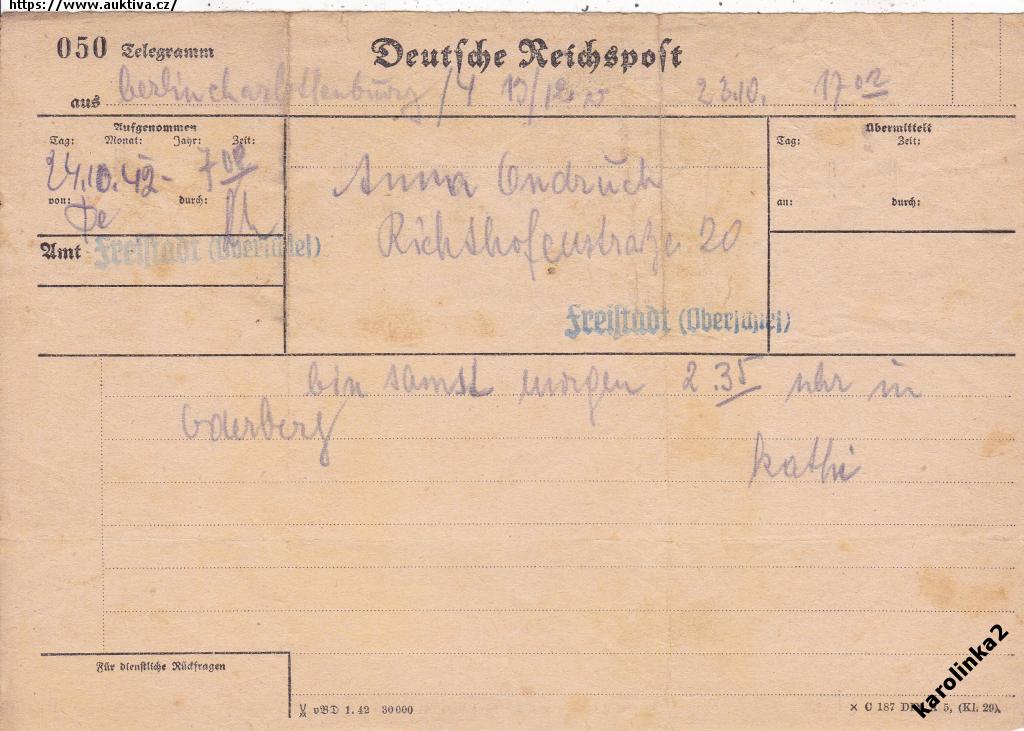 https://www.auktiva.cz/
050 Telegramm
Deutsche Reichspost
aus berlincharlottenburg /4 13/12 23.10. 17 02
Aufgenommen
Tag: Monat: Jahr: Zeit:
24.10.42 - 7 02
von: durch:
Amt Freistadt (Oberschles)
Anna Ondruch
Richthofenstraße 20
Freistadt (Oberschles)
Übermittelt
Tag: Zeit:
an: durch:
bin samst morgen 2.35 uhr in
oderberg
kathi
Für dienstliche Rückfragen
vBD 1. 42 30 000
× C 187 DIN A 5, (Kl. 29).
karolinka2